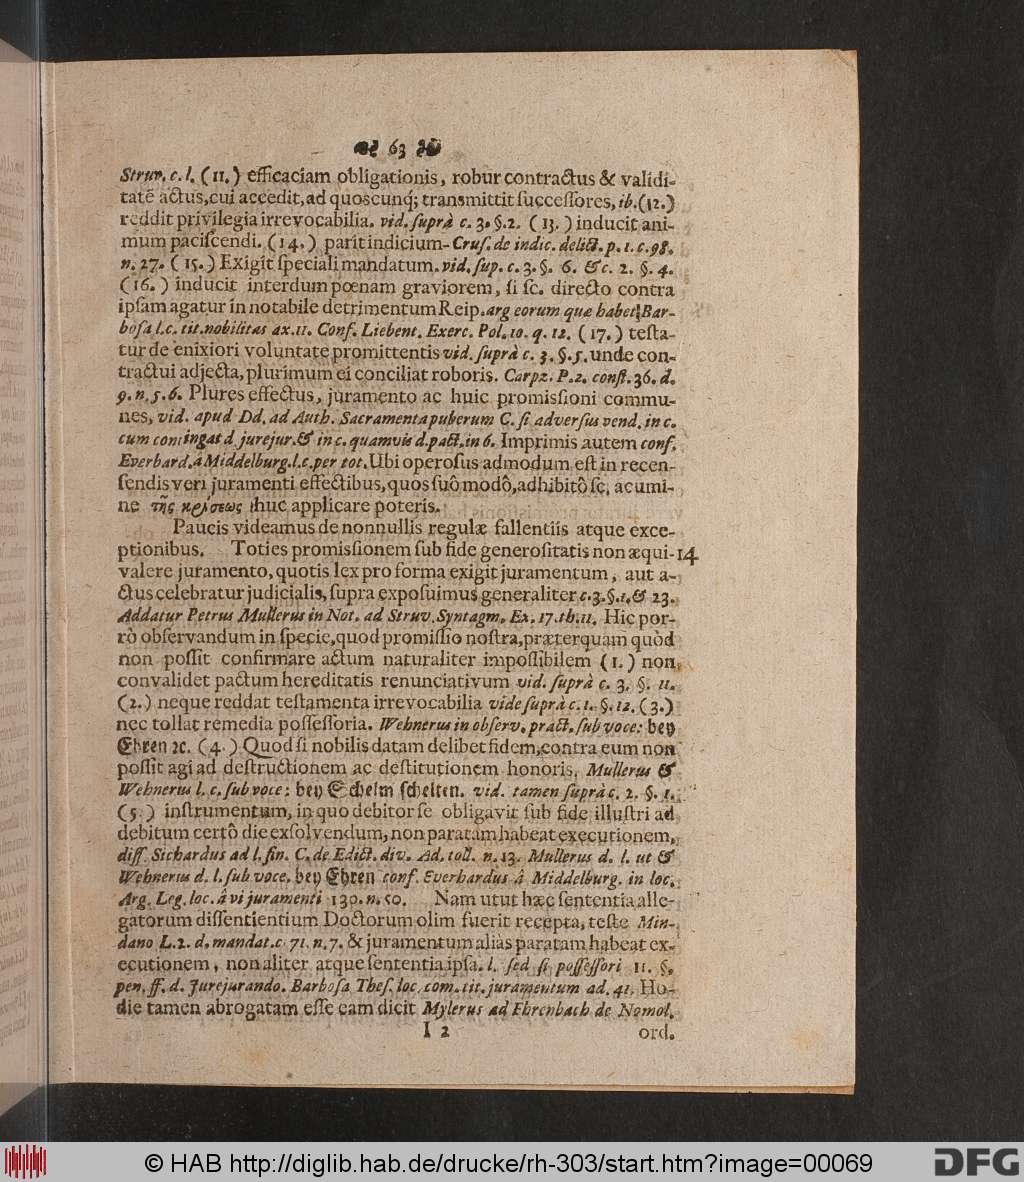 63
Struv. c. l. (11.) efficaciam obligationis, robur contractus & validi-
tatẽ actus, cui accedit, ad quoscunq; transmittit successores, ib. (12.)
reddit privilegia irrevocabilia. vid. suprà c. 3. §. 2. (13.) inducit ani-
mum paciscendi. (14.) parit indicium- Crus. de indic. delict. p. 1. c. 98.
n. 27. (15.) Exigit speciali mandatum. vid. sup. c. 3. §. 6. & c. 2. §. 4.
(16.) inducit interdum pœnam graviorem, si sc. directo contra
ipsam agatur in notabile detrimentum Reip. arg eorum quæ habet Bar-
bosa l. c. tit. nobilitas ax. 11. Conf. Liebent. Exerc. Pol. 10. q. 12. (17.) testa-
tur de enixiori voluntate promittentis vid. suprà c. 3. §. 5. unde con-
tractui adjecta, plurimum ei conciliat roboris. Carpz. P. 2. const. 36. d.
9. n. 5. 6. Plures effectus, juramento ac huic promissioni commu-
nes, vid. apud Dd. ad Auth. Sacramenta puberum C. si adversus vend. in c.
cum contingat d jurejur. & in c. quamvis d. pact. in 6. Imprimis autem conf.
Everhard. â Middelburg. l. c. per tot. Ubi operosus admodum est in recen-
sendis veri juramenti effectibus, quos suô modô, adhibitô sc. acumi-
ne τῆς κρίσεως huc applicare poteris.
Paucis videamus de nonnullis regulæ fallentiis atque exce-
ptionibus. Toties promissionem sub fide generositatis non æqui- 14
valere juramento, quotis lex pro forma exigit juramentum, aut a-
ctus celebratur judicialis, supra exposuimus generaliter c. 3. §. 1. & 23.
Addatur Petrus Mullerus in Not. ad Struv. Syntagm. Ex. 17. th. 11. Hic por-
rò observandum in specie, quod promissio nostra, præterquam quòd
non possit confirmare actum naturaliter impossibilem (1.) non
convalidet pactum hereditatis renunciativum vid. suprà c. 3. §. 11.
(2.) neque reddat testamenta irrevocabilia vide suprà c. 1. §. 12. (3.)
nec tollat remedia possessoria. Wehnerus in observ. pract. sub voce: bey
Ehren ꝛc. (4.) Quod si nobilis datam delibet fidem, contra eum non
possit agi ad destructionem ac destitutionem honoris, Mullerus &
Wehnerus l. c. sub voce: bey Schelm schelten. vid. tamen suprà c. 2. §. 1.
(5.) instrumentum, in quo debitor se obligavit sub fide illustri ad
debitum certô die exsolvendum, non paratam habeat executionem,
diss. Sichardus ad l. fin. C. de Edict. div. Ad. toll. n. 13. Mullerus d. l. ut &
Wehnerus d. l. sub voce. bey Ehren conf. Everhardus â Middelburg. in loc.
Arg. Leg. loc. â vi juramenti 130. n. 50. Nam utut hæc sententia alle-
gatorum dissentientium Doctorum olim fuerit recepta, teste Min-
dano L. 2. d. mandat. c. 71. n. 7. & juramentum aliàs paratam habeat ex-
ecutionem, non aliter atque sententia ipsa. l. sed si possessori 11. §.
pen. ff. d. Jurejurando. Barbosa Thes. loc. com. tit. juramentum ad. 41. Ho-
die tamen abrogatam esse eam dicit Mylerus ad Ehrenbach de Nomol.
I 2 ord.
© HAB http://diglib.hab.de/drucke/rh-303/start.htm?image=00069
DFG